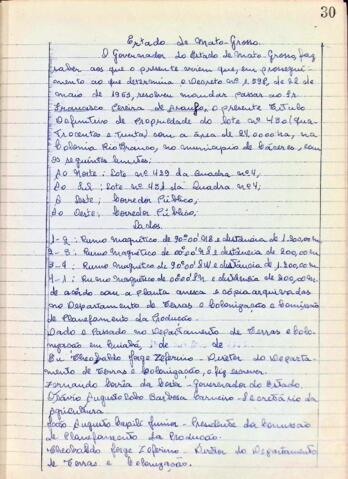 30
Estado de Mato-Grosso.
O Governador do Estado de Mato-Grosso, faz
saber aos que o presente virem que, em prosegui-
mento ao que determina o Decreto nº 1.598, de 22 de
maio de 1953, resolveu mandar passar ao Sr.
Francisco Pereira de Araujo, o presente Título
Definitivo de Propriedade do lote nº 430 (qua-
trocentos e trinta) com a área de 24.0000 ha, na
Colonia Rio Branco, no municipio de Cáceres, com
os seguintes limites:
Ao Norte: Lote nº 429 da Quadra nº 4;
Ao Sul: Lote nº 431 da Quadra nº 4;
A Leste; Corredor Público;
Ao Oeste; Corredor Público;
Lados.
1-2: Rumo magnético de 90º00' NE e distância de 1.200,00 m
2-3: Rumo magnético de 00º00' e distância de 200,00 m
3-4: Rumo magnético de 90º00' SW e distância de 1.200,00 m
4-1: Rumo magnético de 00º00' e distância de 200,00 m
de acordo com a planta anexa e cópia arquivadas
no Departamento de Terras e Colonização e Comissão
de Planejamento da Produção.
Dado e Passado no Departamento de Terras e Colo-
nização em Cuiabá,
Eu Theobaldo Jorge Zeferino - Diretor do Departa-
mento de Terras e Colonização, o fiz escrever.
Fernando Corrêa da Costa - Governador do Estado.
Otávio Augusto Lobo Barbosa Carneiro - Secretário da
Agricultura
João Augusto Capilé Junior - Presidente da Comissão
de Planejamento da Produção.
Theobaldo Jorge Zeferino - Diretor do Departamento
de Terras e Colonização.